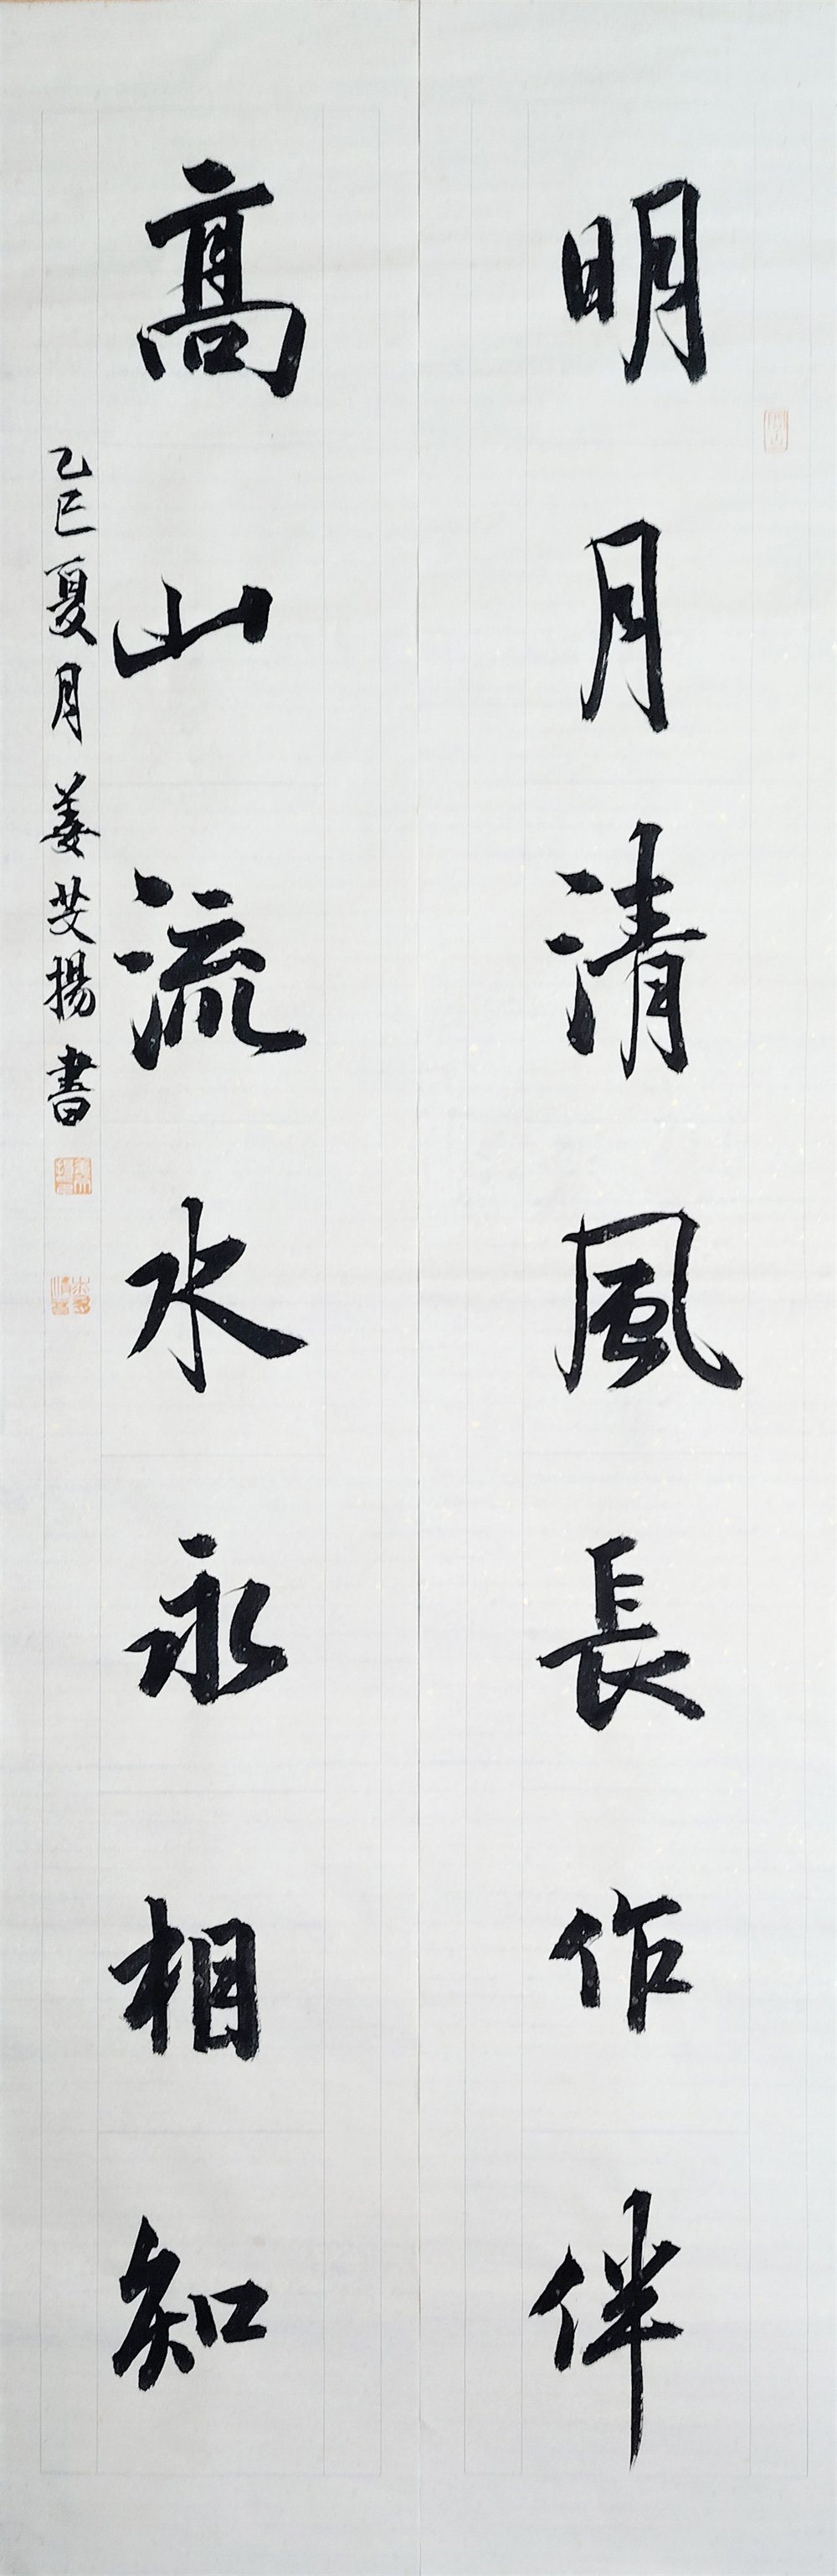 明月清風長作伴
高山流水永相知
乙巳夏月姜芆揚書